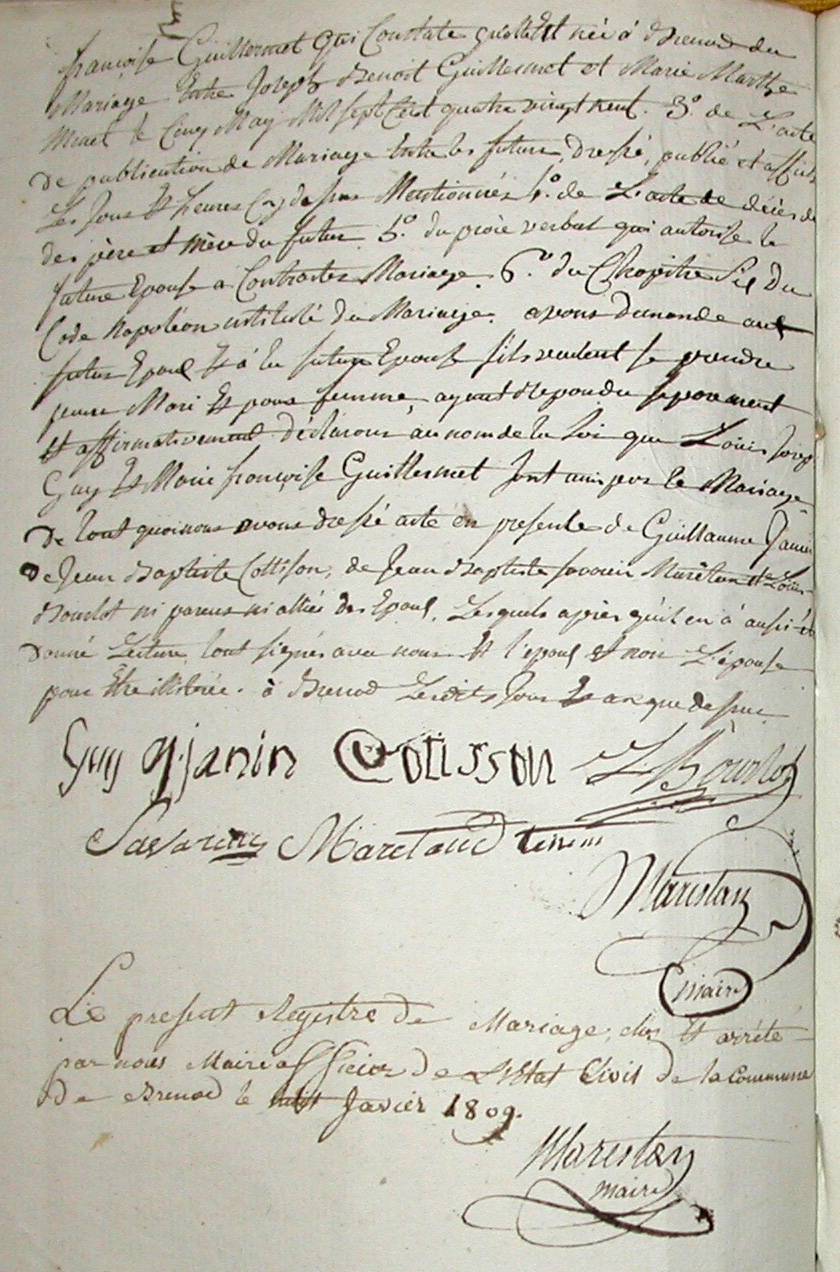 françoise Guillermet qui Constate quelle Est née á Brenod du
Mariage Entre Joseph Benoit Guillermet et Marie Marthe
Minet le Cinq May Mil sept Cent quatre vingt neuf. 3.º de L'acte
De publication de Mariage Entre les futurs, dressé, publié et affiché
Les Jours Et heures Cy dessus Mentionnés 4.º de L'acte de décès de
des père et mère du futur. 5.º du procè verbal qui autorise la
future Epouse a Contracter Mariage. 6.º du Chapitre Six Du
Code Napoléon intitulé du Mariage. avons demandé aux
futur Epoux Et á la future Epouse s'ils veulent se prendre
pour Mari Et pour femme, ayant Repondu séparément
Et affirmativement déclarons au nom de la Loi que Louis Josep
Guy Et Marie françoise Guillermet sont unis par le Mariage
De tout quoi nous avons dressé acte en presence de Guillaume Janin
De Jean Baptiste Collison, de Jean Baptiste savarin Marétan et Louis
Bourlot ni parens ni alliés des Epoux, Lesquels après qu'il en á aussi été
Donné Lecture l'ont signés avec nous Et l'epoux et non L'épouse
pour Etre illitérée. á Brenod Lesdits Jour Et an que dessus.
Guy g.janin Colisson L Bourlot
Savarin Maretand
Marestan
maire
Le present Registre de Mariage, clos Et arrété
par nous Maire officier de L'Etat Civil de la Commune
De Brenod le Javier 1809.
Marestan
maire